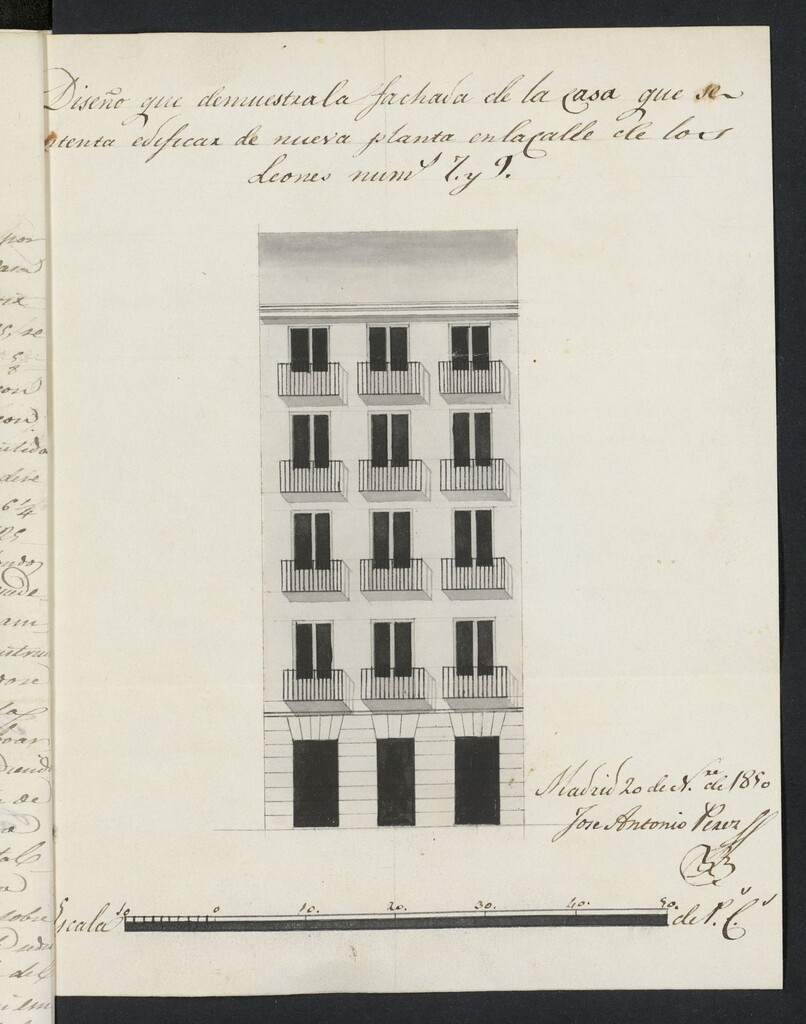 Diseño que demuestra la fachada de la casa que se
ntenta edificar de nueva planta en la calle de los
Leones num.s 7. y 9.
por
6 1/4
de
sobre
del
Madrid 20 de N.re de 1850
Jose Antonio Perez
Escala 10 0 10. 20. 30. 40. 50. de P.s C.s